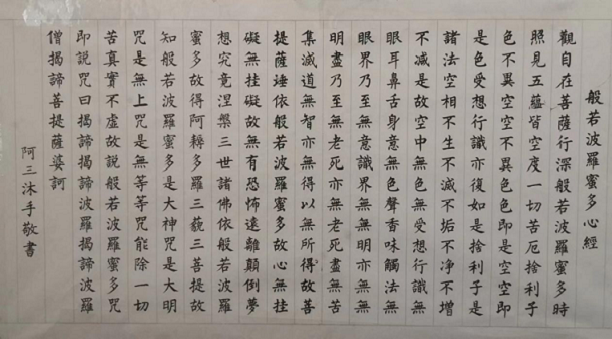 般若波羅蜜多心經
觀自在菩薩行深般若波羅蜜多時
照見五蘊皆空度一切苦厄捨利子
色不異空空不異色色即是空空即
是色受想行識亦復如是捨利子是
諸法空相不生不滅不垢不净不增
不减是故空中無色無受想行識無
眼耳鼻舌身意無色聲香味觸法無
眼界乃至無意識界無無明亦無無
明盡乃至無老死亦無老死盡無苦
集滅道無智亦無得以無所得故菩
提薩埵依般若波羅蜜多故心無挂
礙無挂礙故無有恐怖遠離顛倒夢
想究竟涅槃三世諸佛依般若波羅
蜜多故得阿耨多羅三藐三菩提故
知般若波羅蜜多是大神咒是大明
咒是無上咒是無等等咒能除一切
苦真實不虛故說般若波羅蜜多咒
即說咒曰揭諦揭諦波羅揭諦波羅
僧揭諦菩提薩婆訶
阿三沐手敬書